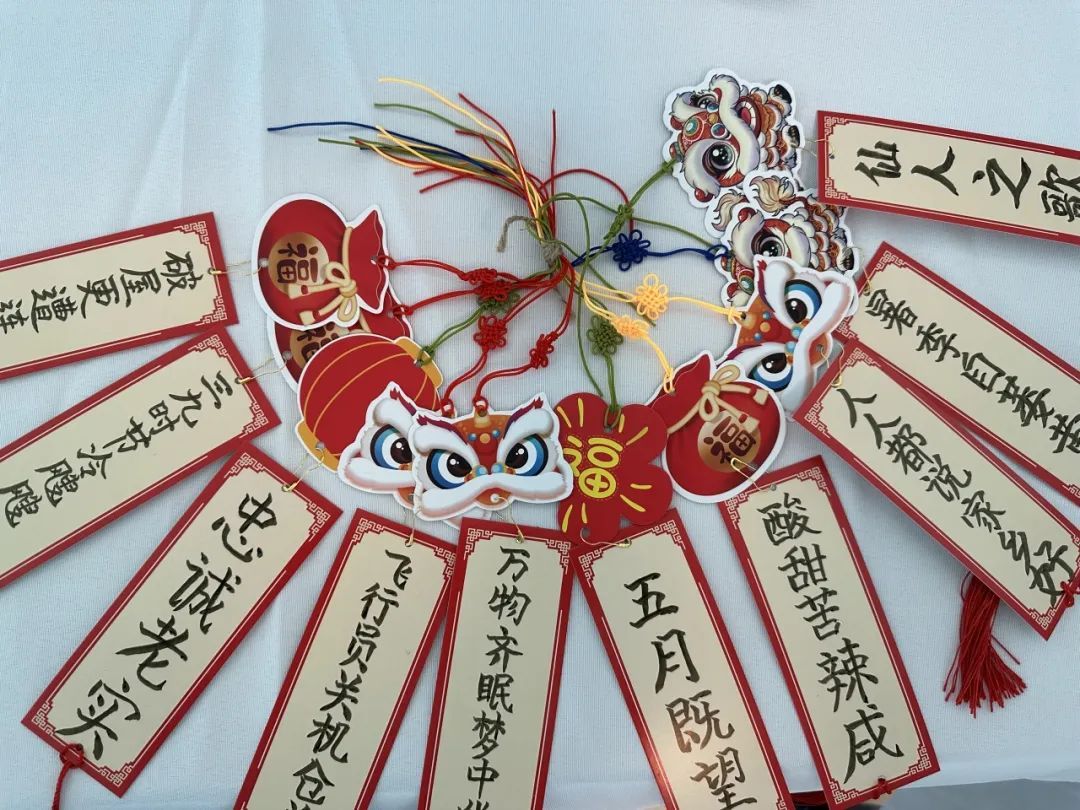 仙人之歌
破屋更遭连
暑季自萎黄
人人都说家乡好
三九时节冷飕飕
忠诚老实
飞行员关机仓
万物齐眠梦中
五月既望
酸甜苦辣咸
福
福
福